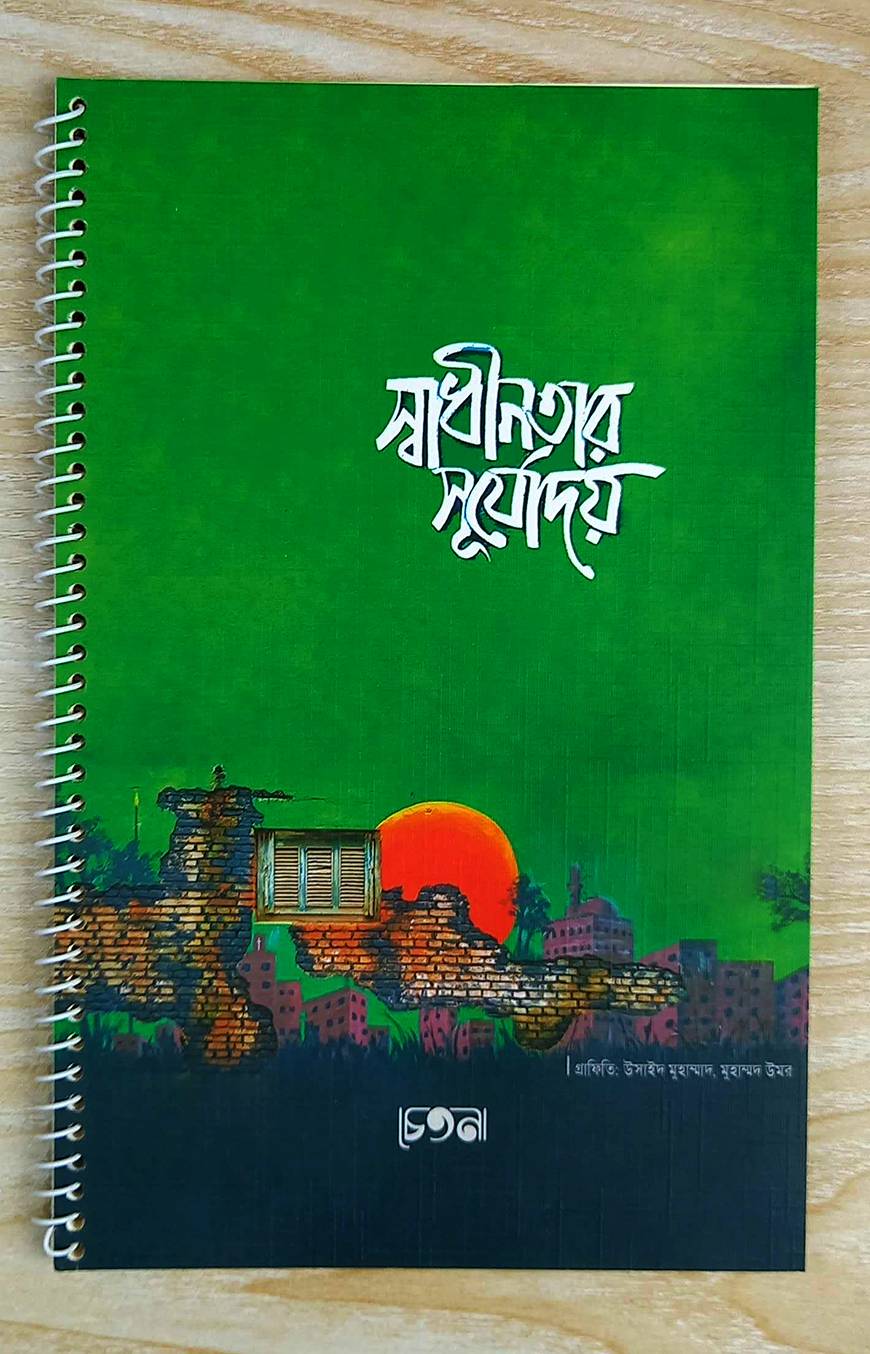 স্বাধীনতার
সূর্যোদয়
গ্রাফিতি: উসাইদ মুহাম্মাদ, মুহাম্মদ উমর
চেতনা